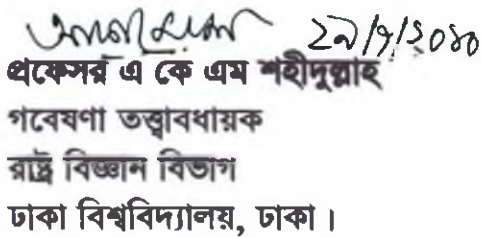 প্রফেসর এ কে এম শহীদুল্লাহ
গবেষণা তত্ত্বাবধায়ক
রাষ্ট্র বিজ্ঞান বিভাগ
ঢাকা বিশ্ববিদ্যালয়, ঢাকা।